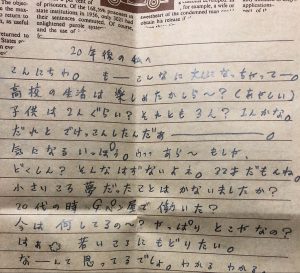 of prisoners. Of the 168,
state institutions in 1956, only
their sentences commuted. Of course,
enlarged parole system
and the use of
returned to
States or
useful
for example, a wife or
sweetheart of the condemned man
obtain his release if
20年後の私へ
こんにちわ。も― こんなに大人になっちゃって―
高校の生活は楽しめたかしら~?(あせしい)
子供は2人ぐらい?それとも3人?1人かな。
だれとけっこんしたんだぁ―
気になるいっぱい。ウフフ あら~ もしや、
どくしん?そんなはずないよネ。32才だもんね。
小さいころ夢だったことはかないましたか?
20代の時、パン屋で働いた?
今は何してるの~?やっぱりとこやなの?
はぁ 若いころにもどりたい。
な―んて思ってるでしょ。わかるわかる。